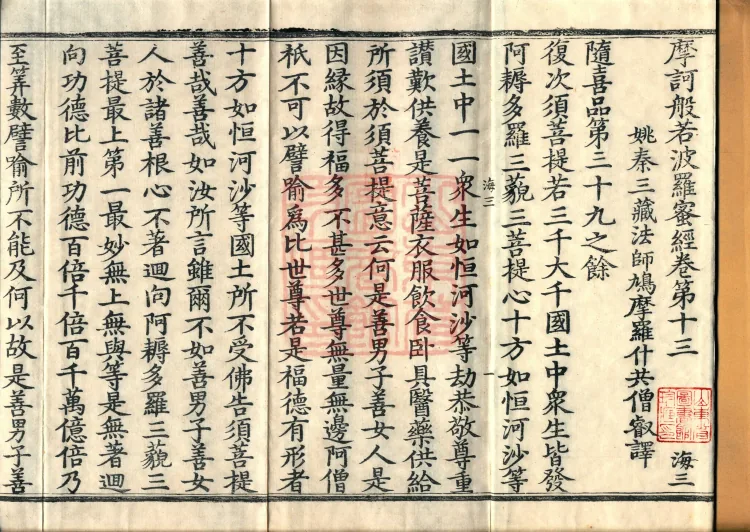 摩訶般若波羅蜜經卷第十三
海三
姚秦三藏法師鳩摩羅什共僧叡譯
隨喜品第三十九之餘
復次須菩提若三千大千國土中衆生皆發
阿耨多羅三藐三菩提心十方如恒河沙等
海三 一
國土中一一衆生如恒河沙等劫恭敬尊重
讃歎供養是菩薩衣服飲食卧具醫藥供給
所須於須菩提意云何是善男子善女人是
因縁故得福多不甚多世尊無量無邊阿僧
祇不可以譬喻爲比世尊若是福德有形者
十方如恒河沙等國土所不受佛告須菩提
善哉善哉如汝所言雖爾不如善男子善女
人於諸善根心不著迴向阿耨多羅三藐三
菩提最上第一最妙無上無與等是無著迴
向功德比前功德百倍千倍百千萬億倍乃
至筭數譬喻所不能及何以故是善男子善
山東省
圖書館